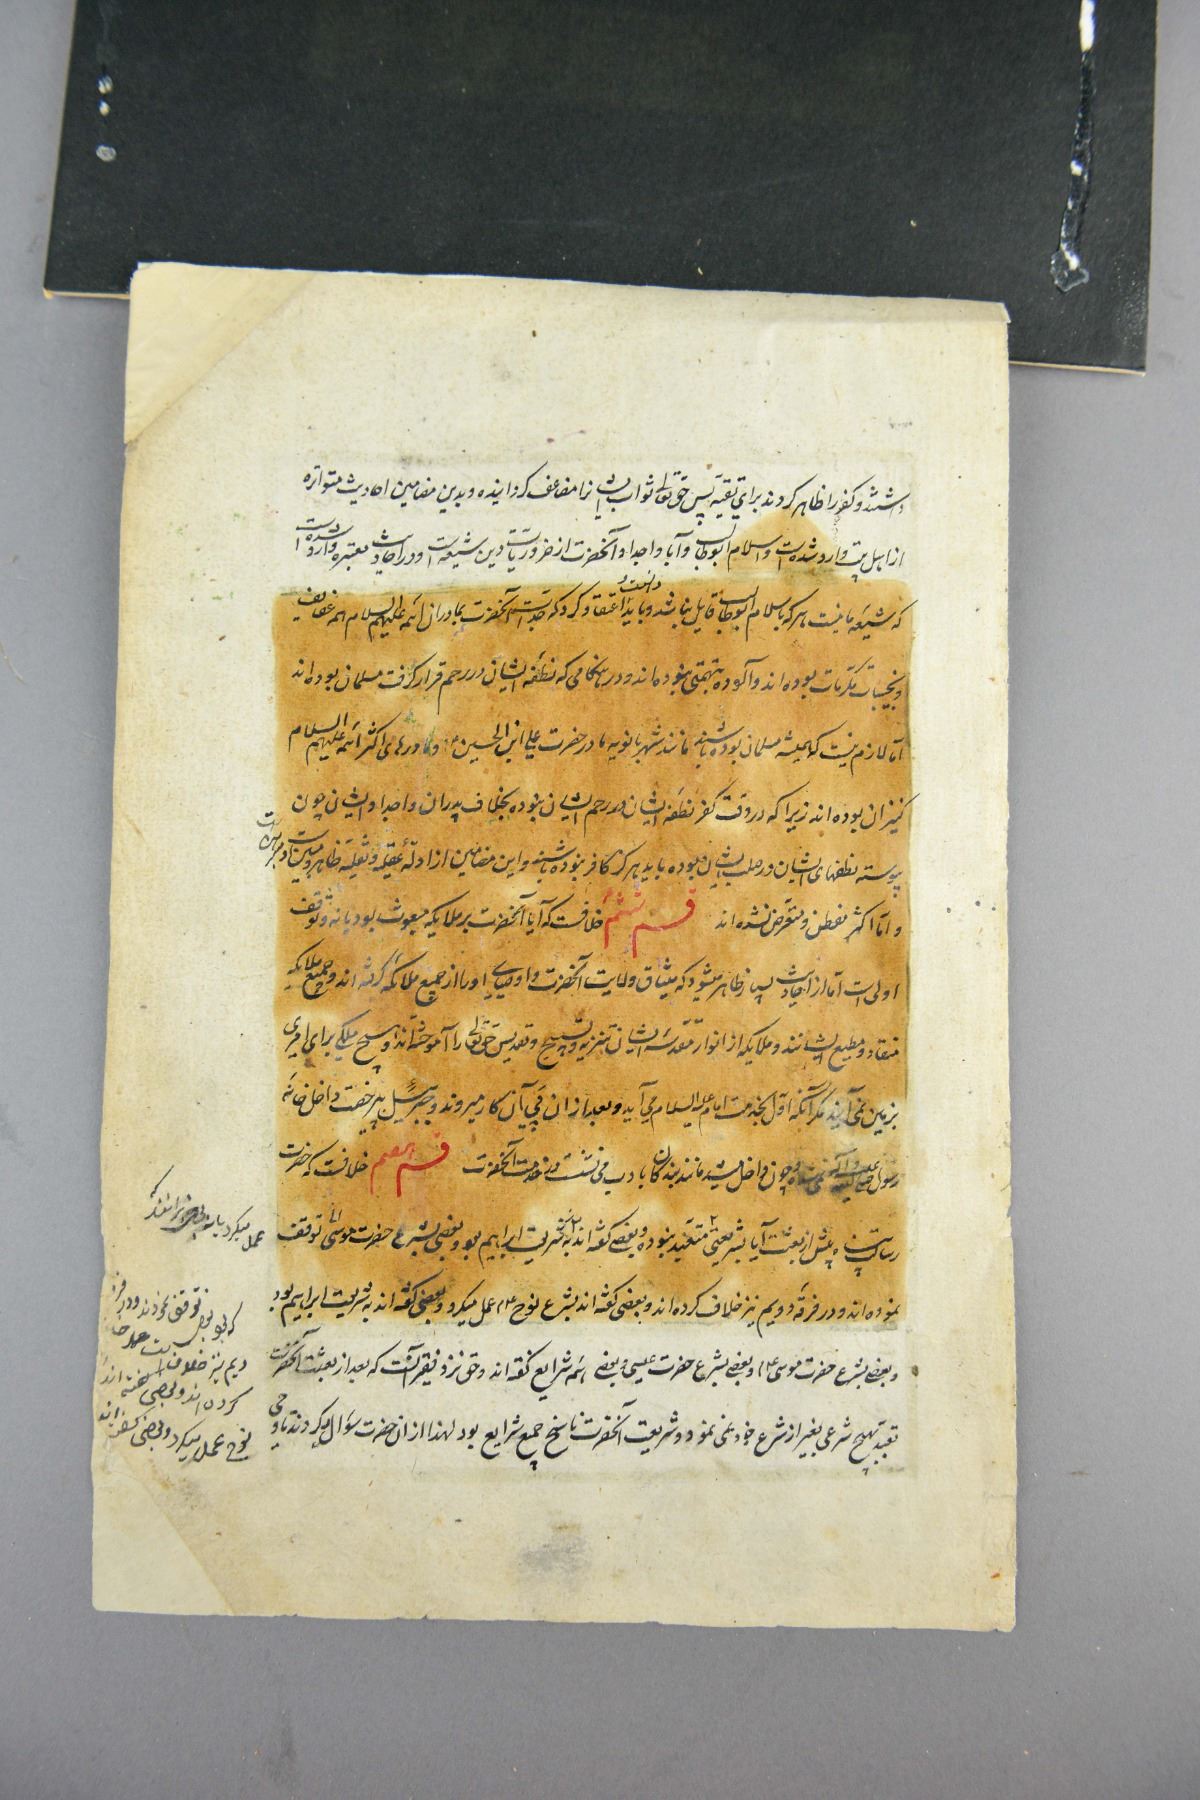 داشتند و کفر را ظاهر کردند برای تقیه پس حق تعالی ثواب ایشان را مضاعف گردانیده و بدین مضامین احادیث متواتره
از اهل بیت وارد شده است و اسلام ابوطالب و آبا و اجداد آنحضرت از ضروریات دین شیعه است و در احادیث معتبره وارد شده است
که شیعهٔ ما نیست هر که باسلام ابوطالب قایل نباشد و باید دانست و اعتقاد کرد که جدات آنحضرت بمادران ائمه علیهم السلام همه عفایف
و نجیبات مکرمات بوده اند و آلوده بتهمتی نبوده اند و در هنگامی که نطفه ایشان در رحم قرار گرفت مسلمان بوده اند
اما لازم نیست که همیشه مسلمان بوده باشند مانند شهربانویه مادر حضرت علی ابن الحسین ع و مادرهای اکثر ائمه علیهم السلام
کنیزان بوده اند زیرا که در وقت کفر نطفه ایشان در رحم ایشان نبوده بخلاف پدران و اجداد ایشان چون
پیوسته نطفهای ایشان در صلب ایشان بوده باید هرگز کافر نبوده باشند و این مضامین از ادلّهٔ عقلیه و نقلیه ظاهر و مبین است
و اما اکثر متفطن و متعرض نشده اند قسم ششم خلافست که آیا آنحضرت بر ملایکه مبعوث بود یا نه و توقف
اولی است اما از احادیث بسیار ظاهر میشود که میثاق ولایت آنحضرت و اوصیای او را از جمیع ملائکه گرفته اند و جمیع ملایکه
منقاد و مطیع ایشانند و ملایکه از انوار مقدسهٔ ایشان تنزیه و تسبیح و تقدیس حق تعالی را آموخته اند و هیچ ملکی برای امری
بزمین نمی آیند مگر آنکه اول بخدمت امام علیه السلام می آید و بعد از ان پی آن کار میروند و جبرئیل بی رخصت داخل خانهٔ
رسول صلی الله علیه و آله نمیشد و چون داخل میشد مانند بندگان بادب می نشست در خدمت آنحضرت قسم هفتم خلافست که حضرت
رسالت پناه پیش از بعثت آیا بشریعتی متعبد بوده و بعضی گفته اند به شریعت ابراهیم بود و بعضی بشرع حضرت موسی توقف
نموده اند و در فرقهٔ دویم نیز خلاف کرده اند و بعضی گفته اند بشرع نوح ع عمل میکرد و بعضی گفته اند به شریعت ابراهیم بود
و بعضی بشرع حضرت موسی ع و بعضی بشرع حضرت عیسی و بعضی شرایع گفته اند و حق نزد فقیر آنست که بعد از بعثت آنحضرت
تعبد بهیچ شرعی بغیر از شرع خود نمی نمود و شریعت آنحضرت ناسخ جمیع شرایع بود لهذا از ان حضرت سؤال میکردند تا وحی
عمل میکرد یا
توقف نموده اند و در فرقهٔ
دیم نیز خلاف
کرده اند و بعضی گفته اند
نوح عمل میکرد و بعضی گفته اند